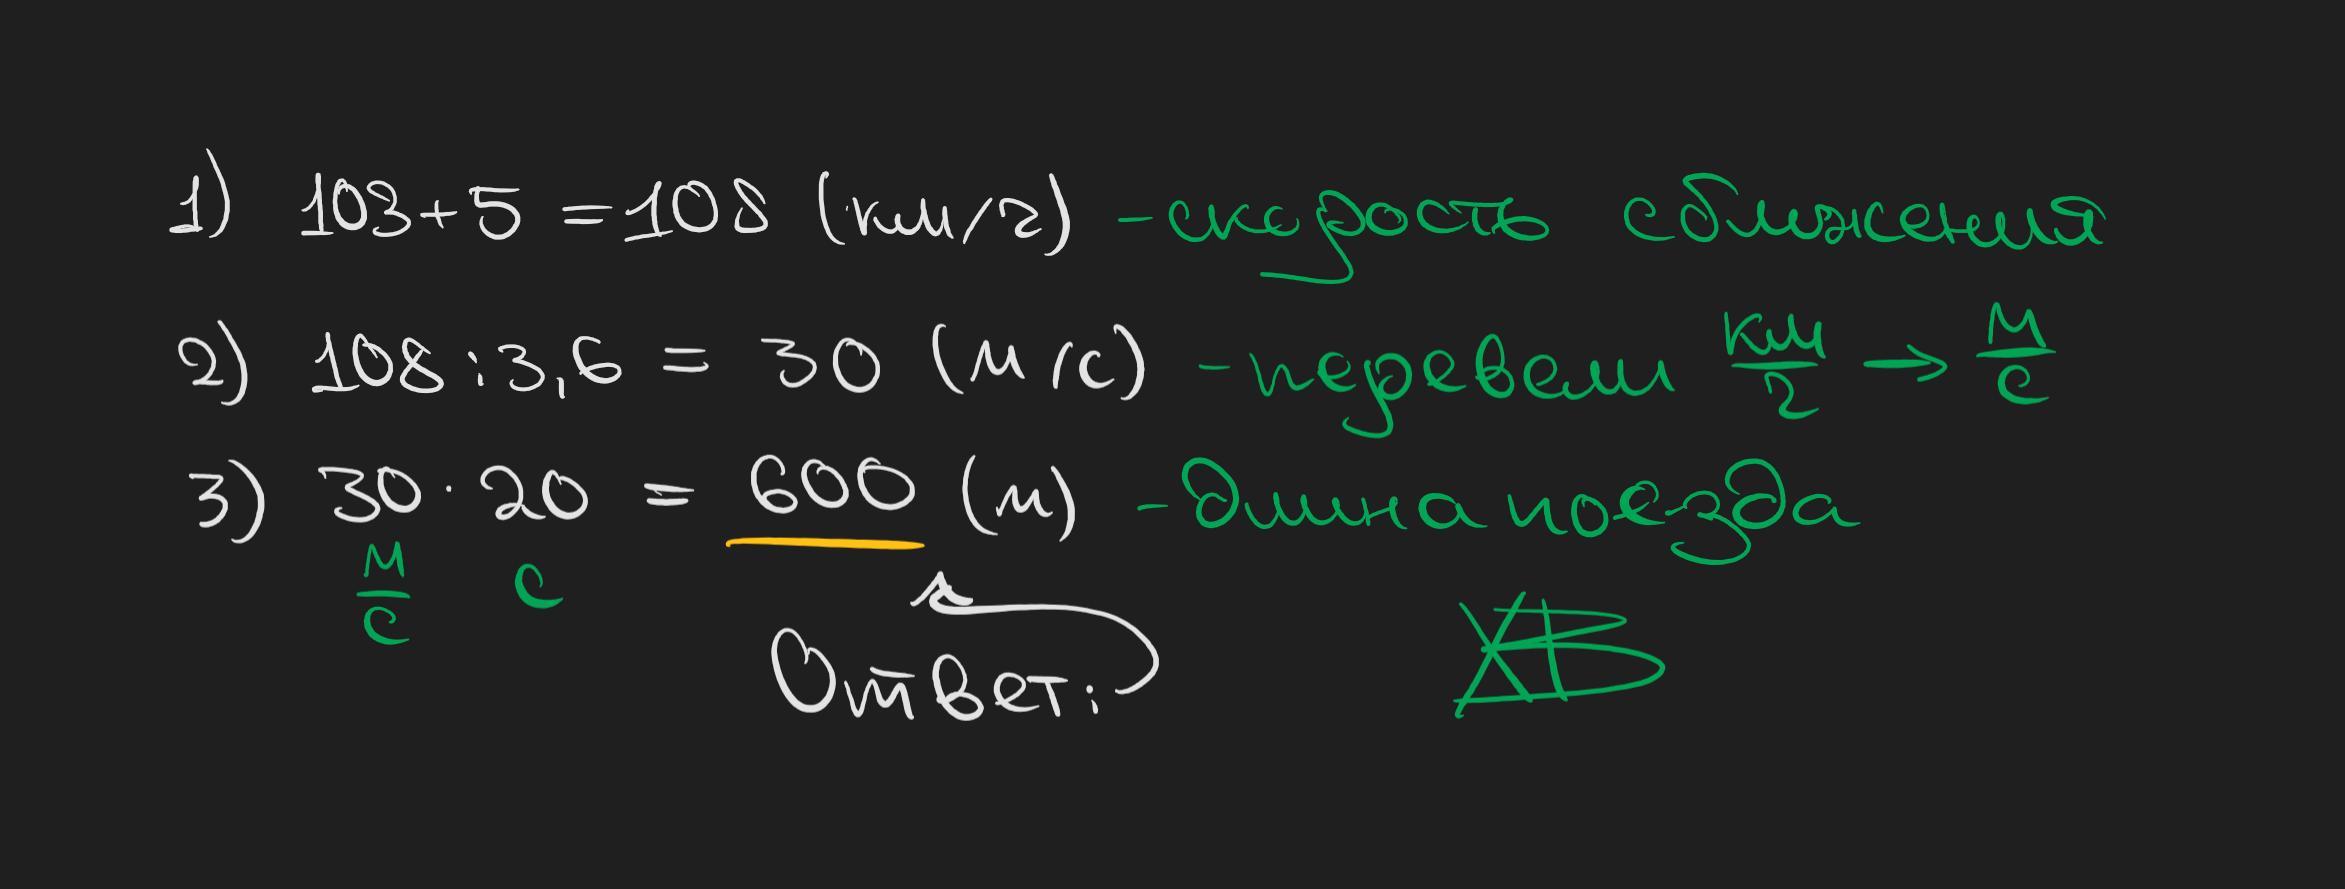 1) 103+5 = 108 (км/г) - скорость сближения
2) 108 : 3,6 = 30 (м/с) - перевели км/г → м/с
3) 30 · 20 = 600 (м) - длина поезда
м/с с
Ответ:
ХВ